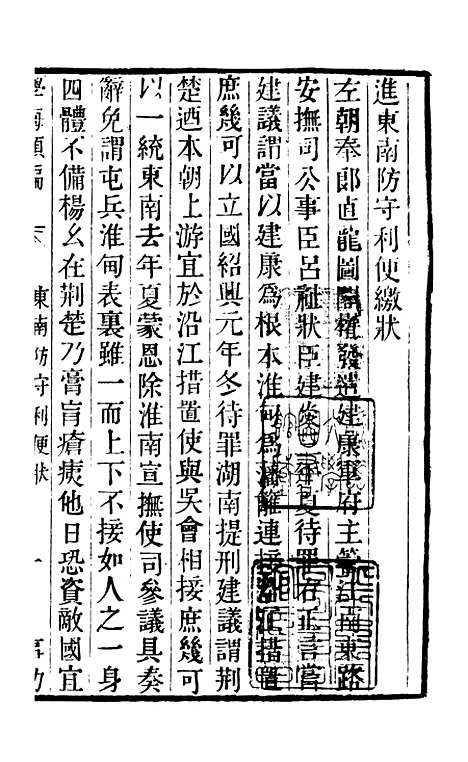 進東南防守利便繳狀
左朝奉郎直龍圖閣權發遣建康軍府主管江南東路
安撫司公事臣呂祉狀臣建炎四年夏待罪右正言嘗
建議謂當以建康爲根本淮甸爲藩籬連接沿江措置
庶幾可以立國紹興元年冬待罪湖南提刑建議謂荆
楚迺本朝上游宜於沿江措置使與吳會相接庶幾可
以一統東南去年夏蒙恩除淮南宣撫使司參議具奏
辭免謂屯兵淮甸表裏雖一而上下不接如人之一身
四體不備楊幺在荆楚乃膏肓瘡痍他日恐資敵國宜
學海類編 東南防守利便狀 一